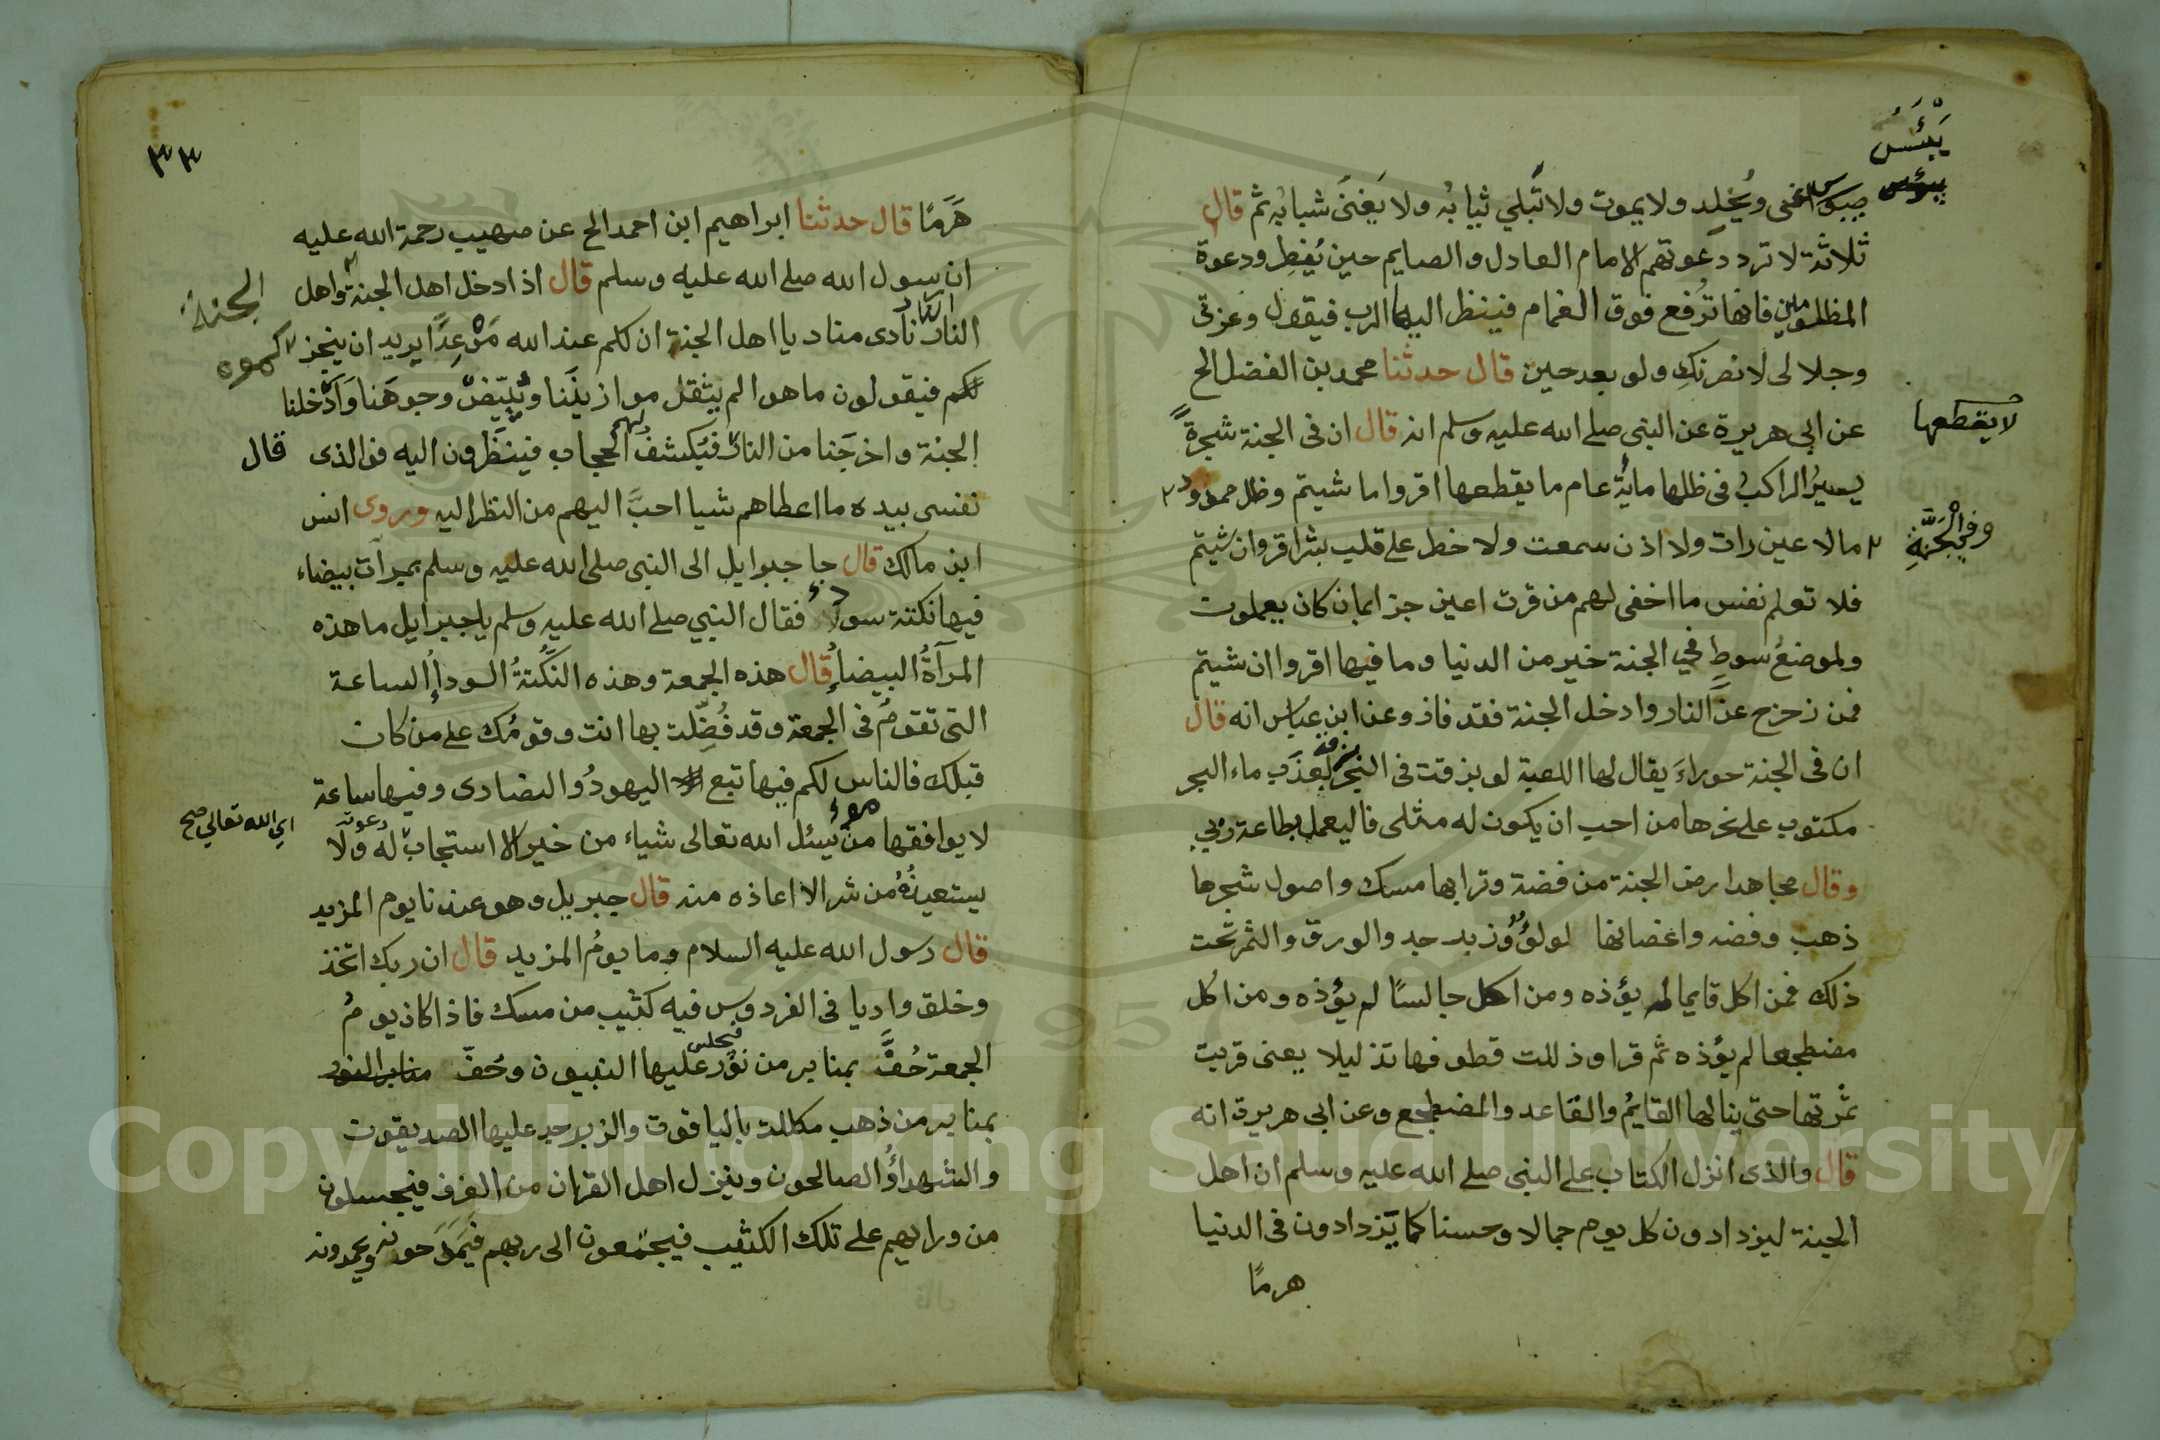 يَبْئَسُ
ويُخلد ولا يموت ولا تَبلي ثيابُه ولا يَفنَى شبابُه ثم قال
ثلاثة لا ترد دعوتهم الامام العادل والصايم حين يُفطِر ودعوة
المظلومين فانها تُرفع فوق الغمام فينظر اليها الرب فيقول وعزتى
وجلالى لانصرنكِ ولو بعد حين قال حدثنا محمد بن الفضل الخ
عن ابى هريرة عن النبى صلى الله عليه وسلم انه قال ان فى الجنة شجرةً
لا يقطعها
يسيرُ الراكب فى ظلها مائةَ عام ما يقطعها اقروا ما شيتم وظل ممدود
وفي الجَنَّةِ
ما لا عين رات ولا اذن سمعت ولا خطر على قلب بشر اقروا ان شيتم
فلا تعلم نفس ما اخفى لهم من قرت اعين جزا بمان كان يعملوت
ولموضعُ سوطٍ في الجنة خير من الدنيا وما فيها اقروا ان شيتم
فمن زحزح عن النار وادخل الجنة فقد فاذ وعن ابن عباس انه قال
ان فى الجنة حوراءَ يقال لها اللعبة لو بزقت فى البحر لعذَب ماء البحر
مكتوب على نحرها من احب ان يكون له مثلى فاليعمل بطاعة ربي
وقال مجاهد ارض الجنة من فضة وترابها مسك واصول شجرها
ذهب وفضه واغصانها لولؤ وزبرجد والورق والثمر تحت
ذلك فمن اكل قايما لم يؤذه ومن اكل جالسًا لم يؤذه ومن اكل
مضطجعا لم يؤذه ثم قرا وذللت قطوفها تذليلا يعنى قربت
ثمرتها حتى ينالها القايمُ والقاعد والمضطجع وعن ابى هريرة انه
قال والذى انزل الكتاب على النبى صلى الله عليه وسلم ان اهل
الجنة ليزدادون كل يوم جمالا وحسنا كما يَزدادون فى الدنيا
هرمًا
٣٣
هَرَمًا قال حدثنا ابراهيم ابن احمد الخ عن صهيب رحمة الله عليه
ان رسول الله صلى الله عليه وسلم قال اذا دخل اهل الجنة واهل
الجنةَ
النار نادى مناد يا اهل الجنة ان لكم عند الله مَوْعِدًا يريد ان ينجز
كموه
لكم فيقولون ما هو الم يثقل موازينَنا ويُبيّضْ وجوهَنا وَادْخلنا
الجنة واخرَجَنا من النار فيُكشف لهم الحجاب فينظُرون اليه فوالذى قال
نفسى بيده ما اعطاهم شيا احبَّ اليهم من النظر اليه وروى انس
ابن مالك قال جا جبرايل الى النبى صلى الله عليه وسلم بمرآت بيضاء
فيها نكتة سوداء فقال النبي صلى الله عليه وسلم يا جبرايل ما هذه
المرآةُ البيضاُ قال هذه الجمعة وهذه النكُتةُ السوداُ الساعة
التى تقومُ فى الجمعة وقد فُضِّلت بها انت وقومُك على من كان
قبلك فالناس لكم فيها تبع اليهودُ والنصارى وفيها ساعة
لا يوافقها مومن يسئل الله تعالى شياء من خير الا استجاب له دعوته ولا
اى الله تعالى صح
يستعيذُهُ من شر الا اعاذه منه قال جبريل وهو عندنا يوم المزيد
قال رسول الله عليه السلام وما يومُ المزيد قال ان ربك اتخذ
وخلق واديا فى الفردوس فيه كثيب من مسك فاذا كان يومُ
الجمعة حُفَّ بمنابر من نور فيجلس عليها النبيون وحُفّ منابر النور
بمنابر من ذهب مكللة بالياقوت والزبرجد عليها الصديقوت
والشهداؤُ الصالحون وينزل اهل القران من الغرف فيجلسلون
من ورايهم على تلك الكثيب فيجتمعون الى ربهم فيَمَدَحونه ويحمدونه
Copyright © King Saud University
1957